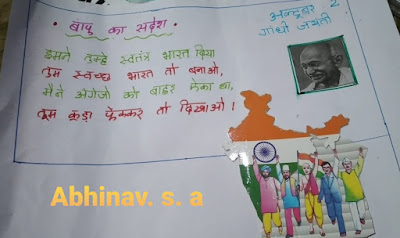 बापू का संदेश
अक्टूबर 2
गांधी जयंती
हमने तुम्हे स्वतंत्र भारत दिया
तुम स्वच्छ भारत तो बनाओ,
मैंने अंग्रेजो को बाहर फेंका था,
तुम कूड़ा फेंककर तो दिखाओ!
Abhinav. s. a